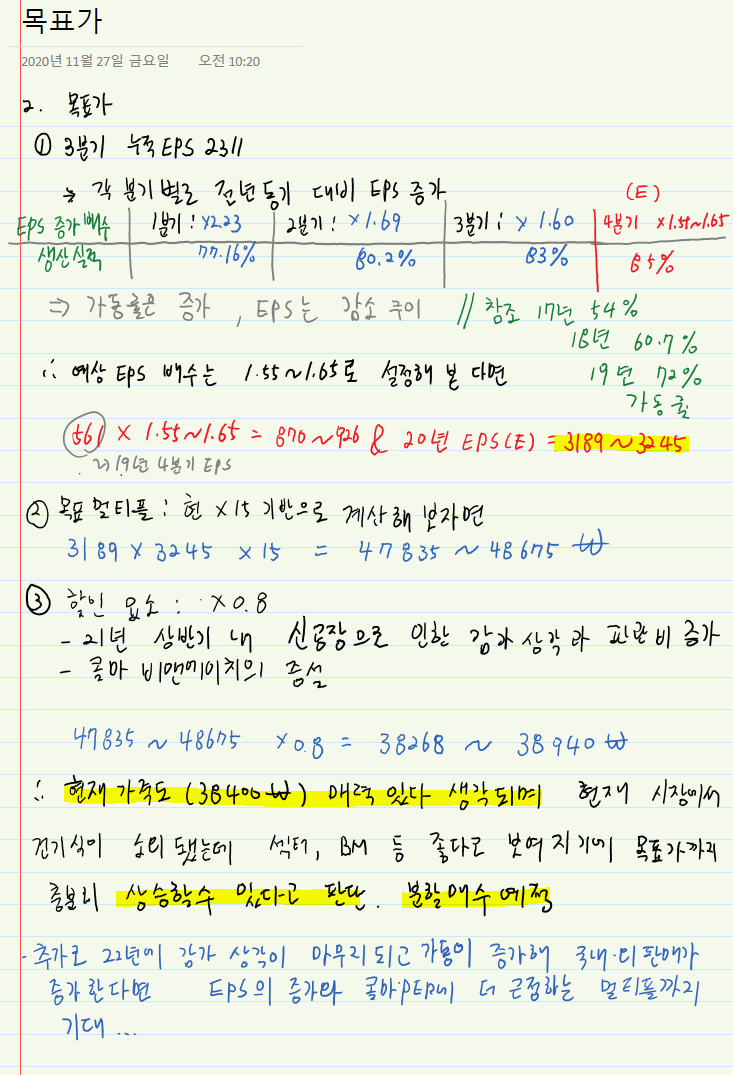 목표가
2020년 11월 27일 금요일 오전 10:20
2. 목표가
① 3분기 누적 EPS 2311
↳ 각 분기별로 전년동기 대비 EPS 증가
(E)
EPS 증가배수 1분기 : x2.23 2분기 : x1.69 3분기 : x 1.60 4분기 x1.55~1.65
생산실적 77.16% 80.2% 83% 85%
⇒ 가동률은 증가, EPS는 감소 추이 // 참조 17년 54%
18년 60.7%
∴ 예상 EPS 배수는 1.55~1.65로 설정해 본다면 19년 72%
가동률
561 x 1.55~1.65 = 870~926 & 20년 EPS(E) = 3189~3245
↝ 19년 4분기 EPS
② 목표 멀티플 : 현 x15 기반으로 계산해 보자면
3189 x 3245 x 15 = 47835 ~ 48675 ₩
③ 할인 요소 : x0.8
- 21년 상반기 내 신공장으로 인한 감가상각과 판관비 증가
- 콜마비앤에이치의 증설
47835 ~ 48675 x0.8 = 38268 ~ 38940 ₩
∴ 현재가격도 (38400 ₩) 매력 있다 생각되며 현재 시장에서
건기식이 소외 됐는데 섹터, BM 등 좋다고 보여지기에 목표가까지
충분히 상승할수 있다고 판단. 분할매수 예정
- 추가로 22년에 감가 상각이 마무리되고 가동이 증가해 국내·외 판매가
증가한다면 EPS의 증가와 콜마 PER에 더 근접하는 멀티플까지
기대...